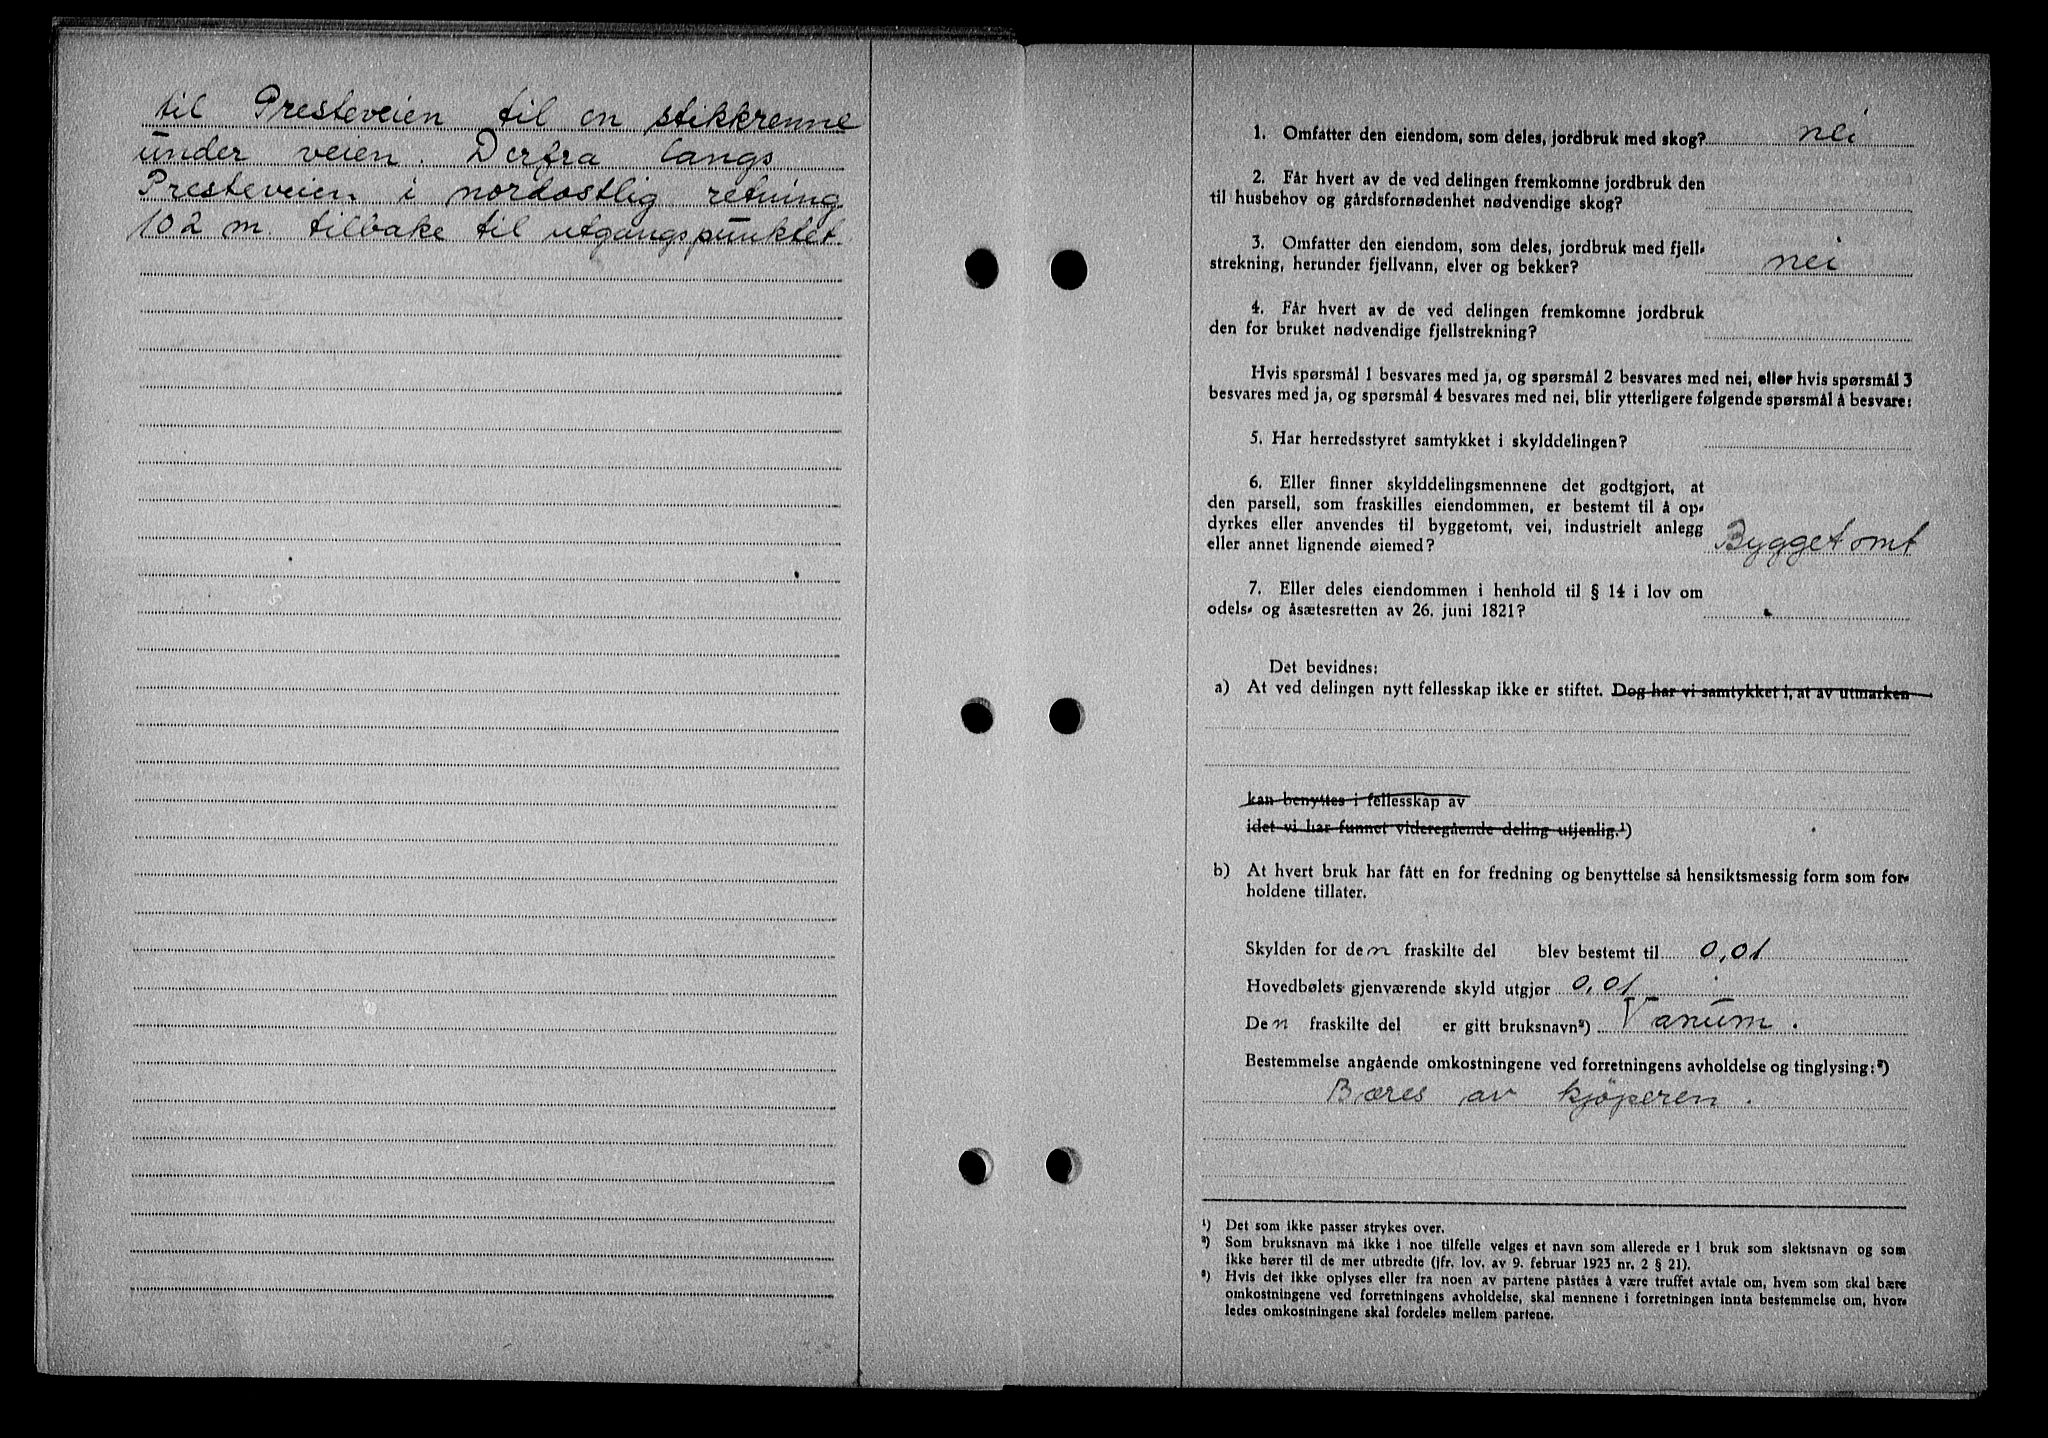 til Presteveien til en stikkrenne
under veien. Derfra langs
Presteveien i nordostlig retning
102 m. tilbake til utgangspunktet.
1. Omfatter den eiendom, som deles, jordbruk med skog? nei
2. Får hvert av de ved delingen fremkomne jordbruk den
til husbehov og gårdsfornødenhet nødvendige skog?
3. Omfatter den eiendom, som deles, jordbruk med fjell-
strekning, herunder fjellvann, elver og bekker? nei
4. Får hvert av de ved delingen fremkomne jordbruk
den for bruket nødvendige fjellstrekning?
Hvis spørsmål 1 besvares med ja, og spørsmål 2 besvares med nei, eller hvis spørsmål 3
besvares med ja, og spørsmål 4 besvares med nei, blir ytterligere følgende spørsmål å besvare:
5. Har herredsstyret samtykket i skylddelingen?
6. Eller finner skylddelingsmennene det godtgjort, at
den parsell, som fraskilles eiendommen, er bestemt til å op-
dyrkes eller anvendes til byggetomt, vei, industrielt anlegg
eller annet lignende øiemed? Byggetomt
7. Eller deles eiendommen i henhold til § 14 i lov om
odels- og åsætesretten av 26. juni 1821?
Det bevidnes:
a) At ved delingen nytt fellesskap ikke er stiftet. Dog har vi samtykket i, at av utmarken
kan benyttes i fellesskap av
idet vi har funnet videregående deling utjenlig.¹)
b) At hvert bruk har fått en for fredning og benyttelse så hensiktsmessig form som for-
holdene tillater.
Skylden for den fraskilte del blev bestemt til 0,01
Hovedbølets gjenværende skyld utgjør 0,01
Den fraskilte del er gitt bruksnavn²) Vanum.
Bestemmelse angående omkostningene ved forretningens avholdelse og tinglysing:³)
Bæres av kjøperen.
¹) Det som ikke passer strykes over.
²) Som bruksnavn må ikke i noe tilfelle velges et navn som allerede er i bruk som slektsnavn og som
ikke hører til de mer utbredte (jfr. lov. av 9. februar 1923 nr. 2 § 21).
³) Hvis det ikke oplyses eller fra noen av partene påståes å være truffet avtale om, hvem som skal bære
omkostningene ved forretningens avholdelse, skal mennene i forretningen innta bestemmelse om, hvor-
ledes omkostningene skal fordeles mellem partene.